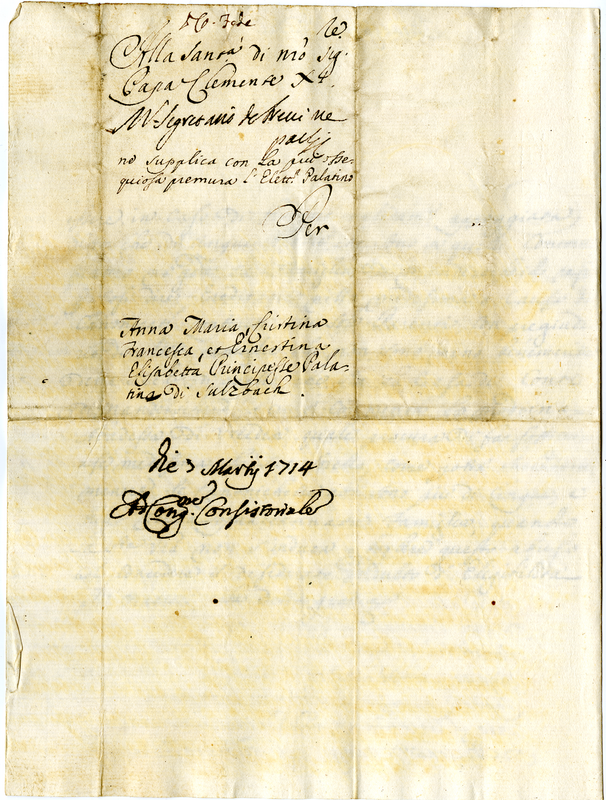 Alla Santà di nrõ Sig.re
Papa Clemente XI.
Mr Segretario de brevi ne
parli
no supplica con la più osse-
quiosa premura l'Elettr Palatino
Per
Anna Maria Cristina
Francesca, et Ernestina
Elisabetta Principesse Pala-
tine di Sulzbach.
Die 3 Martij 1714
Ad Congnem Consistorialem